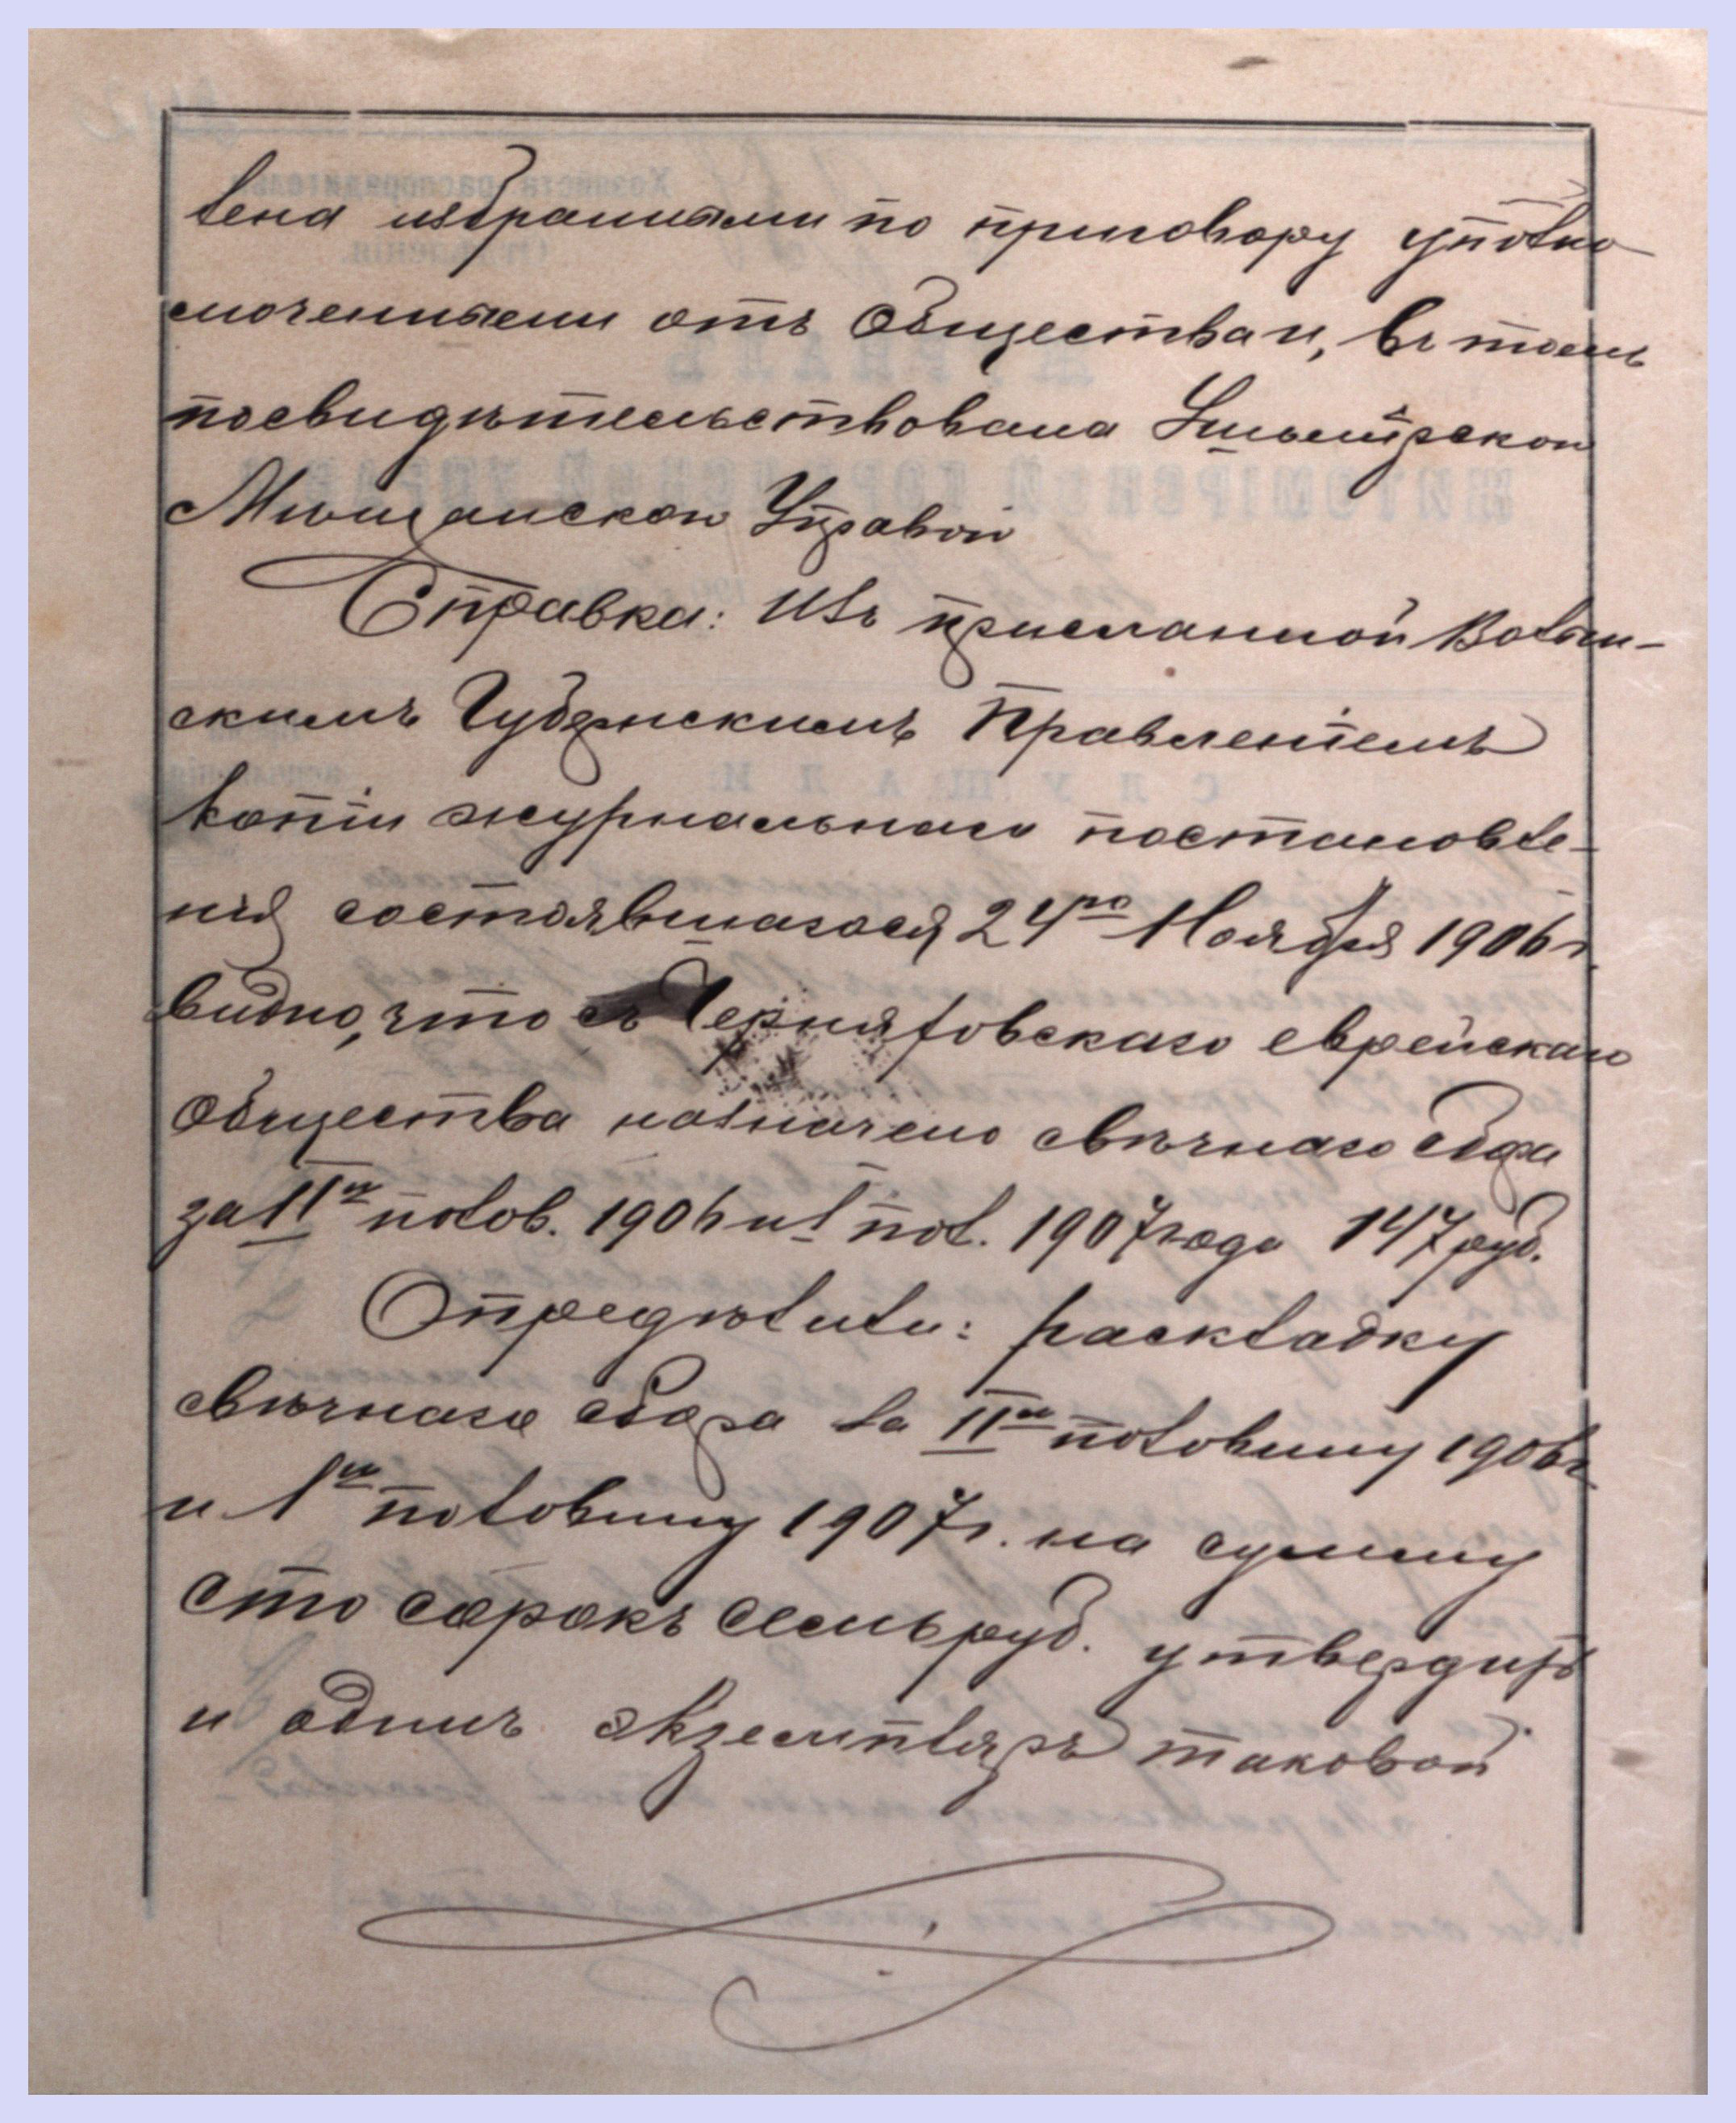 лена избранными по приговору уполно
моченными отъ Общества и, въ томъ
посвидѣтельствована
Мѣщанской Управой
Справка: Изъ присланной Волын-
скимъ Губернскимъ Правленіемъ
копіи журнальнаго постановле-
нія состоявшагося 24го Ноября 1906 г.
видно, что съ Черняховскаго еврейскаго
Общества назначено свѣчнаго сбора
за IIю полов. 1906 и I пол. 1907 года 147 руб.
Опредѣлили: раскладку
свѣчнаго сбора за IIю половину 1906 г
и Iю половину 1907 г. на сумму
сто сорокъ семь руб. утвердить
и одинъ экземпляръ таковой